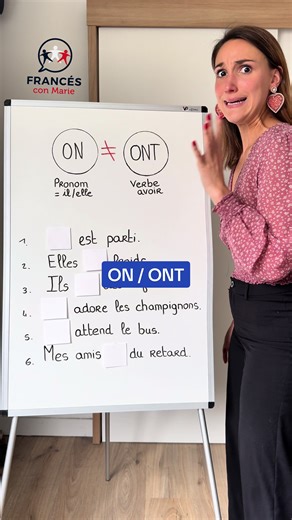 FRANCÉS
con Marie
ON ≠ ONT
Pronom
= il/elle
Verbe
avoir
1. est parti.
2. Elles
3. Ils
ON / ONT
4. adore les champignons.
5. attend le bus.
6. Mes amis du retard.